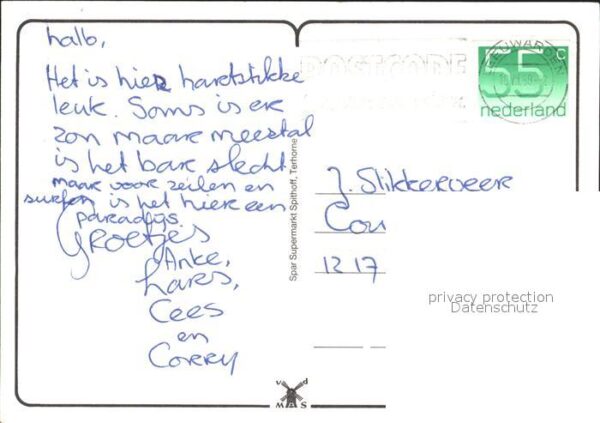 hallo,
Het is hier hartstikke
leuk. Soms is er
zon maar meestal
is het bar slecht
maar voor zeilen en
surfen is het hier een
paradijs.
Groetjes
Anke,
Lars,
Cees
en
Corry
Spar Supermarkt Spithoff, Terhorne
POSTCODE
LEEUWARDEN
55 c
nederland
J. Slikkerveer
Cou
1217
privacy protection
Datenschutz
v d
MAS